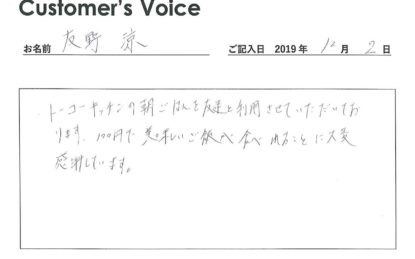 Customer's Voice
お名前 友野 涼 ご記入日 2019 年 12 月 2 日
トーコーキッチンの朝ごはんを友達と利用させていただいてお
ります。100円で美味しいご飯が食べれることに大変
感謝しています。